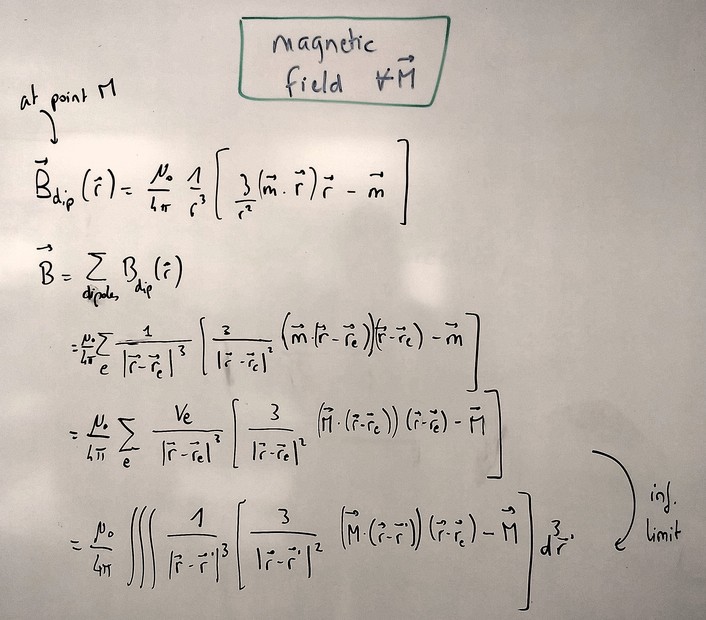 magnetic
field ∀ M⃗
at point M
B⃗_dip (r⃗) = μ₀/4π 1/r³ [ 3/r² (m⃗ . r⃗) r⃗ - m⃗ ]
B⃗ = Σ_dipoles B_dip (r⃗)
= μ₀/4π Σ_e 1/|r⃗ - r⃗_e|³ [ 3/|r⃗ - r⃗_e|² (m⃗ . (r⃗ - r⃗_e)) (r⃗ - r⃗_e) - m⃗ ]
= μ₀/4π Σ_e V_e/|r⃗ - r⃗_e|³ [ 3/|r⃗ - r⃗_e|² (M⃗ . (r⃗ - r⃗_e)) (r⃗ - r⃗_e) - M⃗ ]
= μ₀/4π ∭ 1/|r⃗ - r⃗'|³ [ 3/|r⃗ - r⃗'|² (M⃗ . (r⃗ - r⃗')) (r⃗ - r⃗_e) - M⃗ ] d³r⃗'
inf.
limit